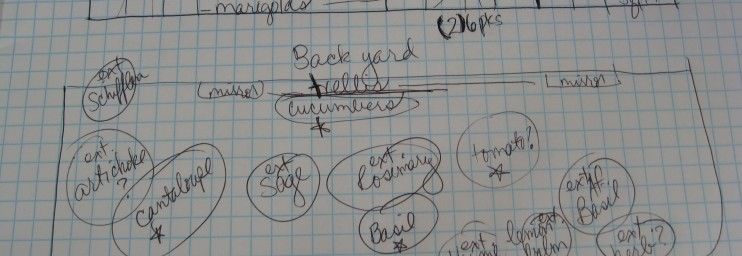 - marigolds
(2) 6 pks
Back yard
trellis
(mirror)
mirror
cucumbers
ext
Schifflera
ext.
artichoke
?
cantaloupe
ext
Sage
ext
Rosemary
Basil
tomato?
ext Af.
Basil
ext
ext
lemon
balm
ext.
herb?